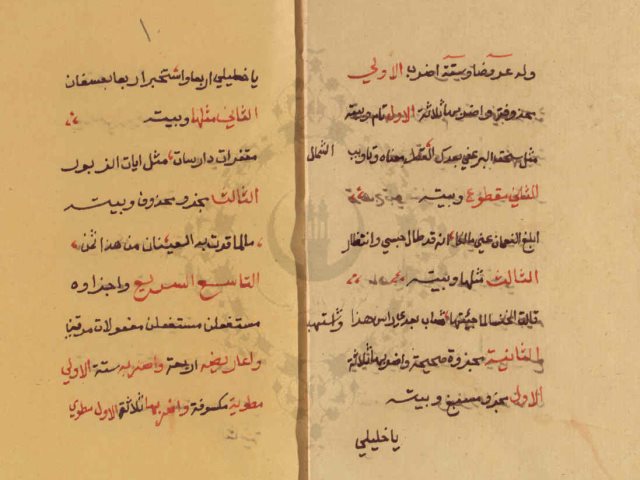 وله عروضان وستة اضرب الاولى
محذوفة واضربها ثلاثة الاول تام وبيته
مثل سحق البرد عفى بعدك القطر مغناه وتاويب الشمال
الثاني مقطوع وبيته
ابلغ النعمان عني مالكا انه قد طال حبسي وانتظار
الثالث مثلها وبيته
قالت الخنساء لما جئتها شاب بعدي راس هذا واشتهب
والثانية مجزوة صحيحة واضربها ثلاثة
الاول مجزو مسبغ وبيته
يا خليلي
يا خليلي اربعا واستخبرا ربعا بعسفان
الثاني مثلها وبيته
مقفرات دارسات مثل ايات الزبور
الثالث مجزو محذوف وبيته
مالما قرت به العينان من هذا ثمن
التاسع السريع واجزاوه
مستفعلن مستفعلن مفعولات مرتين
واعاريضه اربعة واضربه ستة الاولى
مطوية مكسوفة واضربها ثلاثة الاول مطوي